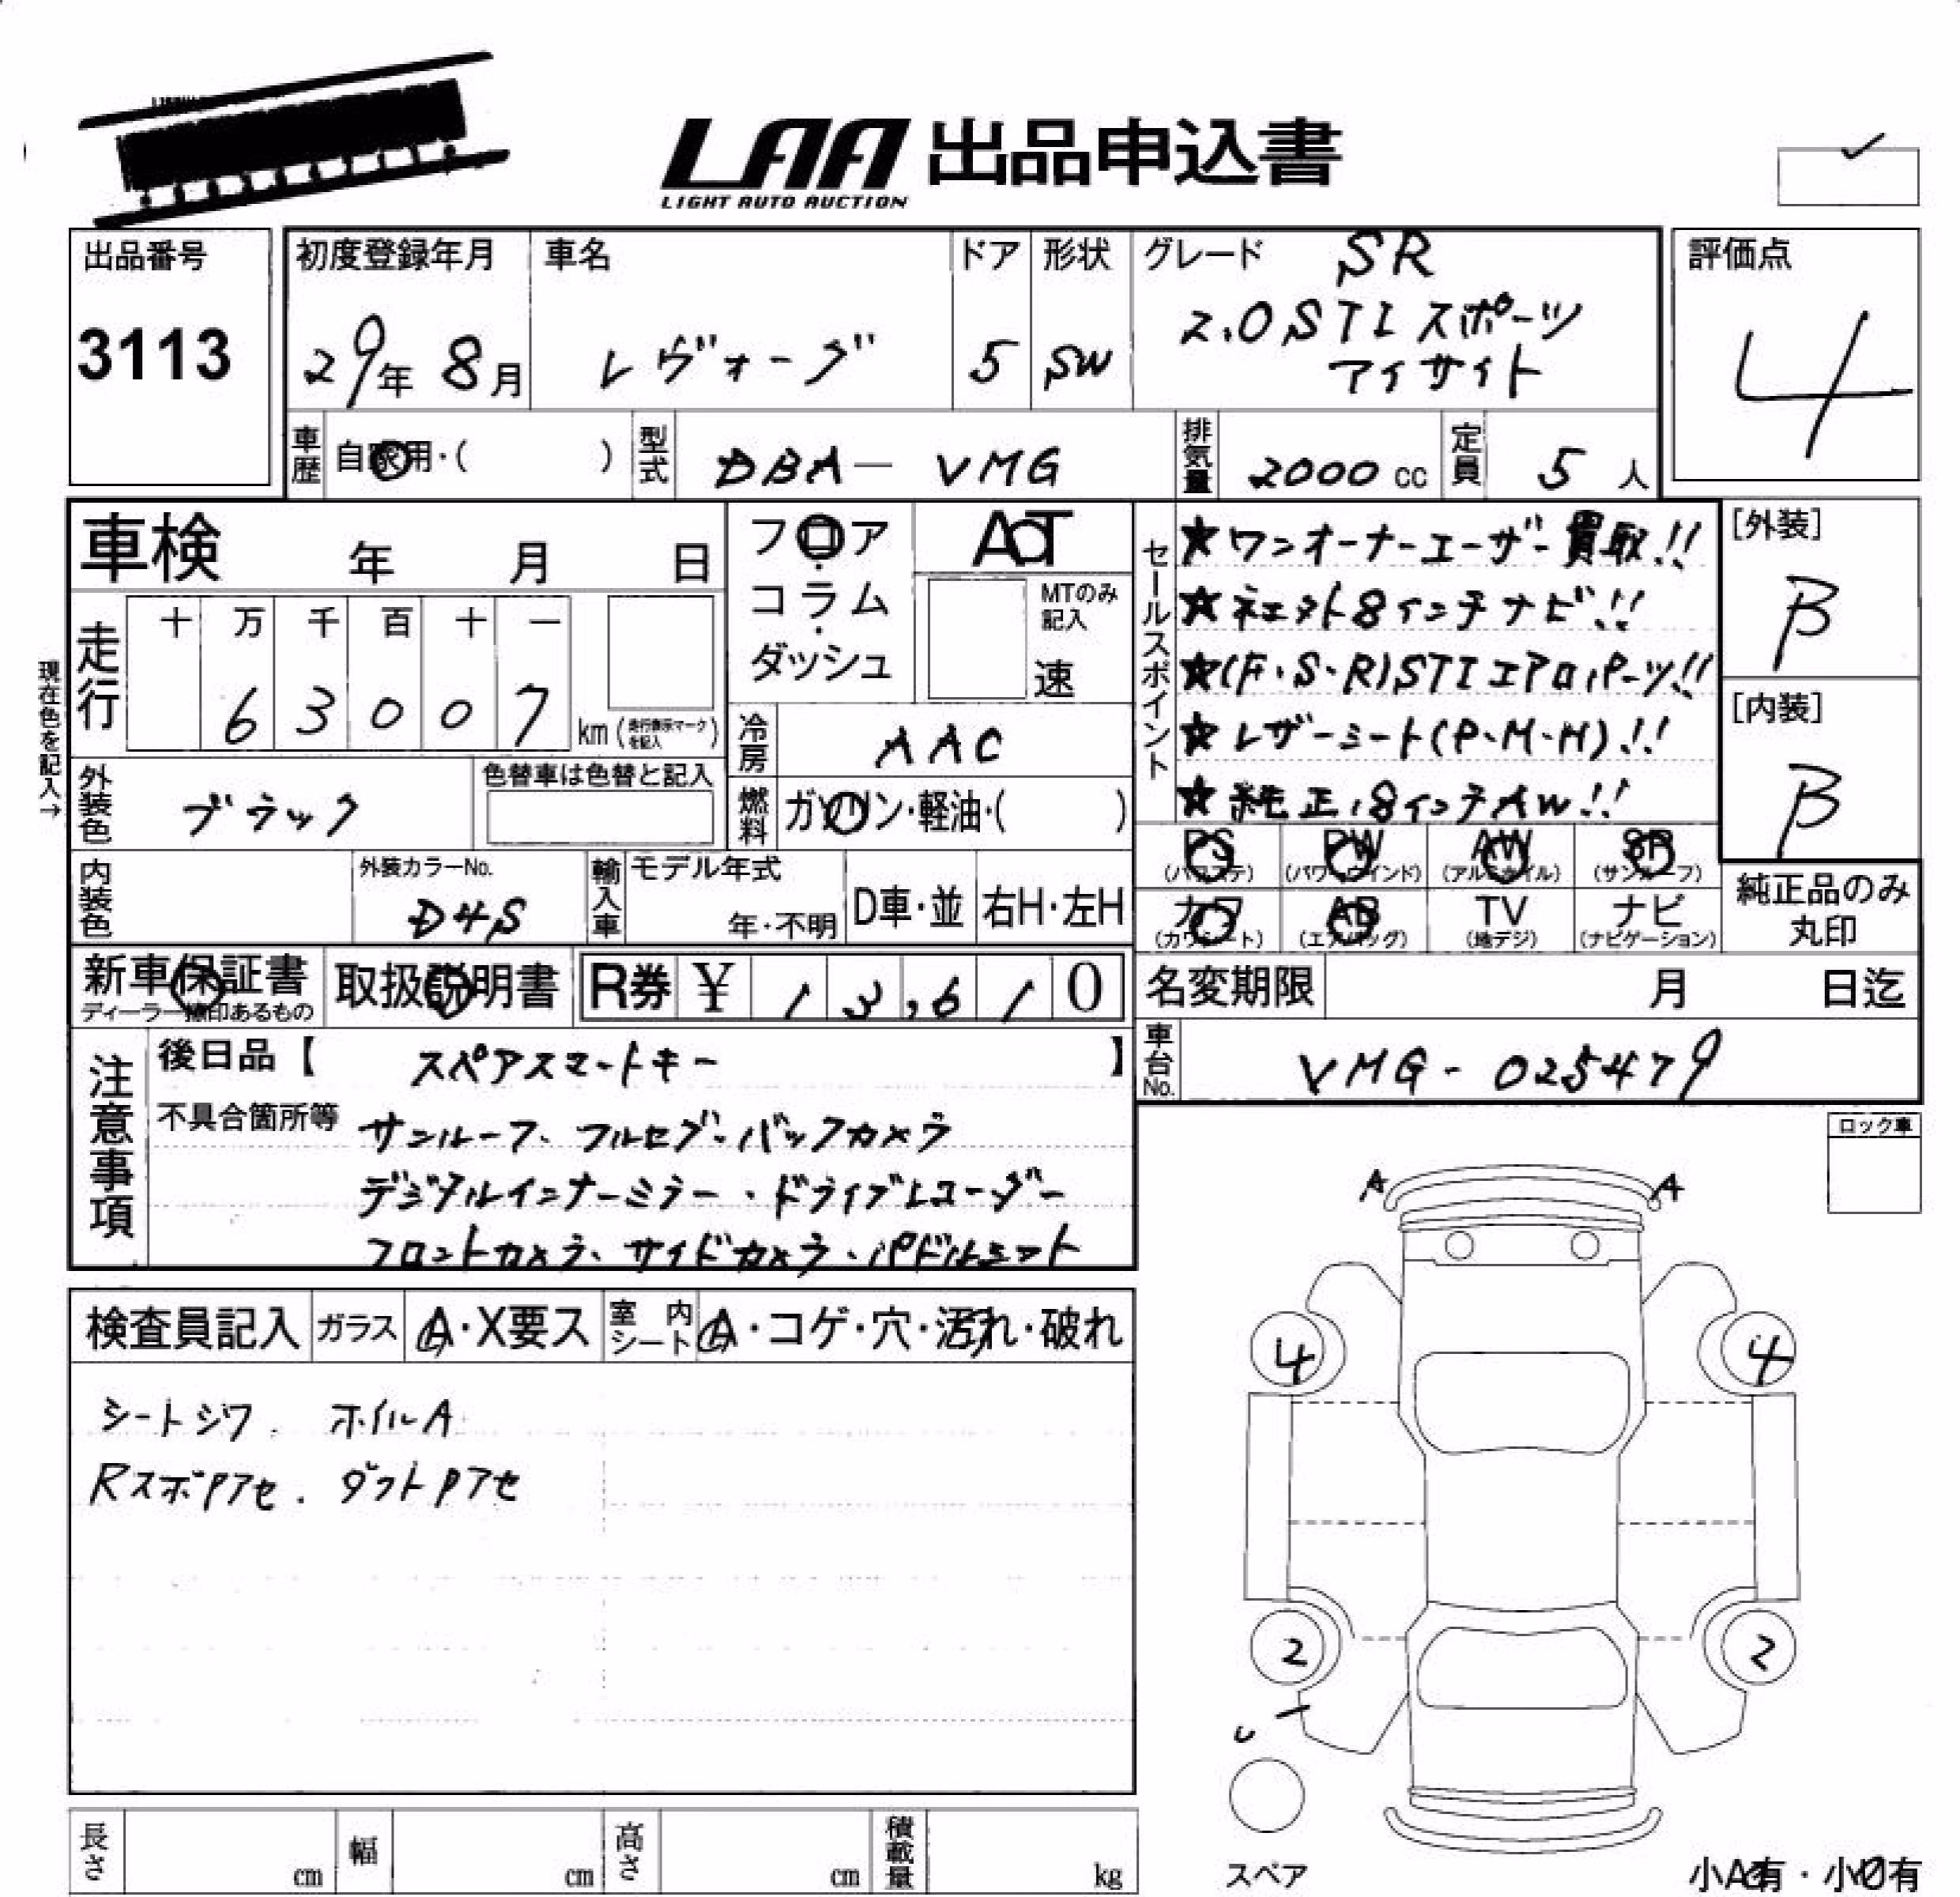 LAA 出品申込書
LIGHT AUTO AUCTION
出品番号
3113
初度登録年月
29年 8月
車名
レヴォーグ
ドア
5
形状
SW
グレード SR
2.0STIスポーツ
アイサイト
評価点
4
車歴 自家用・( )
型式 DBA-VMG
排気量 2000cc
定員 5人
車検 年 月 日
フロア・コラム・ダッシュ
AT
MTのみ記入
速
セールスポイント
★ワンオーナーユーザー買取!!
★ネェット8インチナビ!!
★(F・S・R)STIエアロパーツ!!
★レザーシート(P・M・H)!!
★純正18インチAW!!
[外装]
B
[内装]
B
現在色を記入→
走行
十 万 千 百 十 一
6 3 0 0 7
km(走行表示マークを記入)
冷房 AAC
外装色 ブラック
色替車は色替と記入
燃料 ガソリン・軽油・( )
PS (パワステ) PW (パワーウインド) AW (アルミホイル) SR (サンルーフ)
カワ (カワシート) AB (エアバッグ) TV (地デジ) ナビ (ナビゲーション)
純正品のみ
丸印
内装色
外装カラーNo.
D4S
輸入車
モデル年式
年・不明
D車・並
右H・左H
新車保証書
ディーラー捺印あるもの
取扱説明書
R券 ¥ 13,610
名変期限 月 日迄
車台No. VMG-025479
注意事項
後日品【 スペアスマートキー 】
不具合箇所等 サンルーフ、フルセグ・バックカメラ
デジタルインナーミラー・ドライブレコーダー
フロントカメラ、サイドカメラ・パドルシフト
ロック車
A A
検査員記入
ガラス A・X要ス
室内シート A・コゲ・穴・汚れ・破れ
シートシワ. ホイルA
RスポPアセ. ダクトPアセ
4 4
2 2
スペア
長さ cm
幅 cm
高さ cm
積載量 kg
小A有・小U有